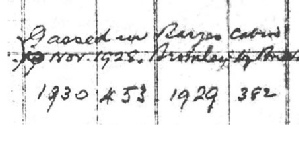 Gassed in Barges Cabin
Nov. 1928. Bromley by Bow
1930 453 1929 382